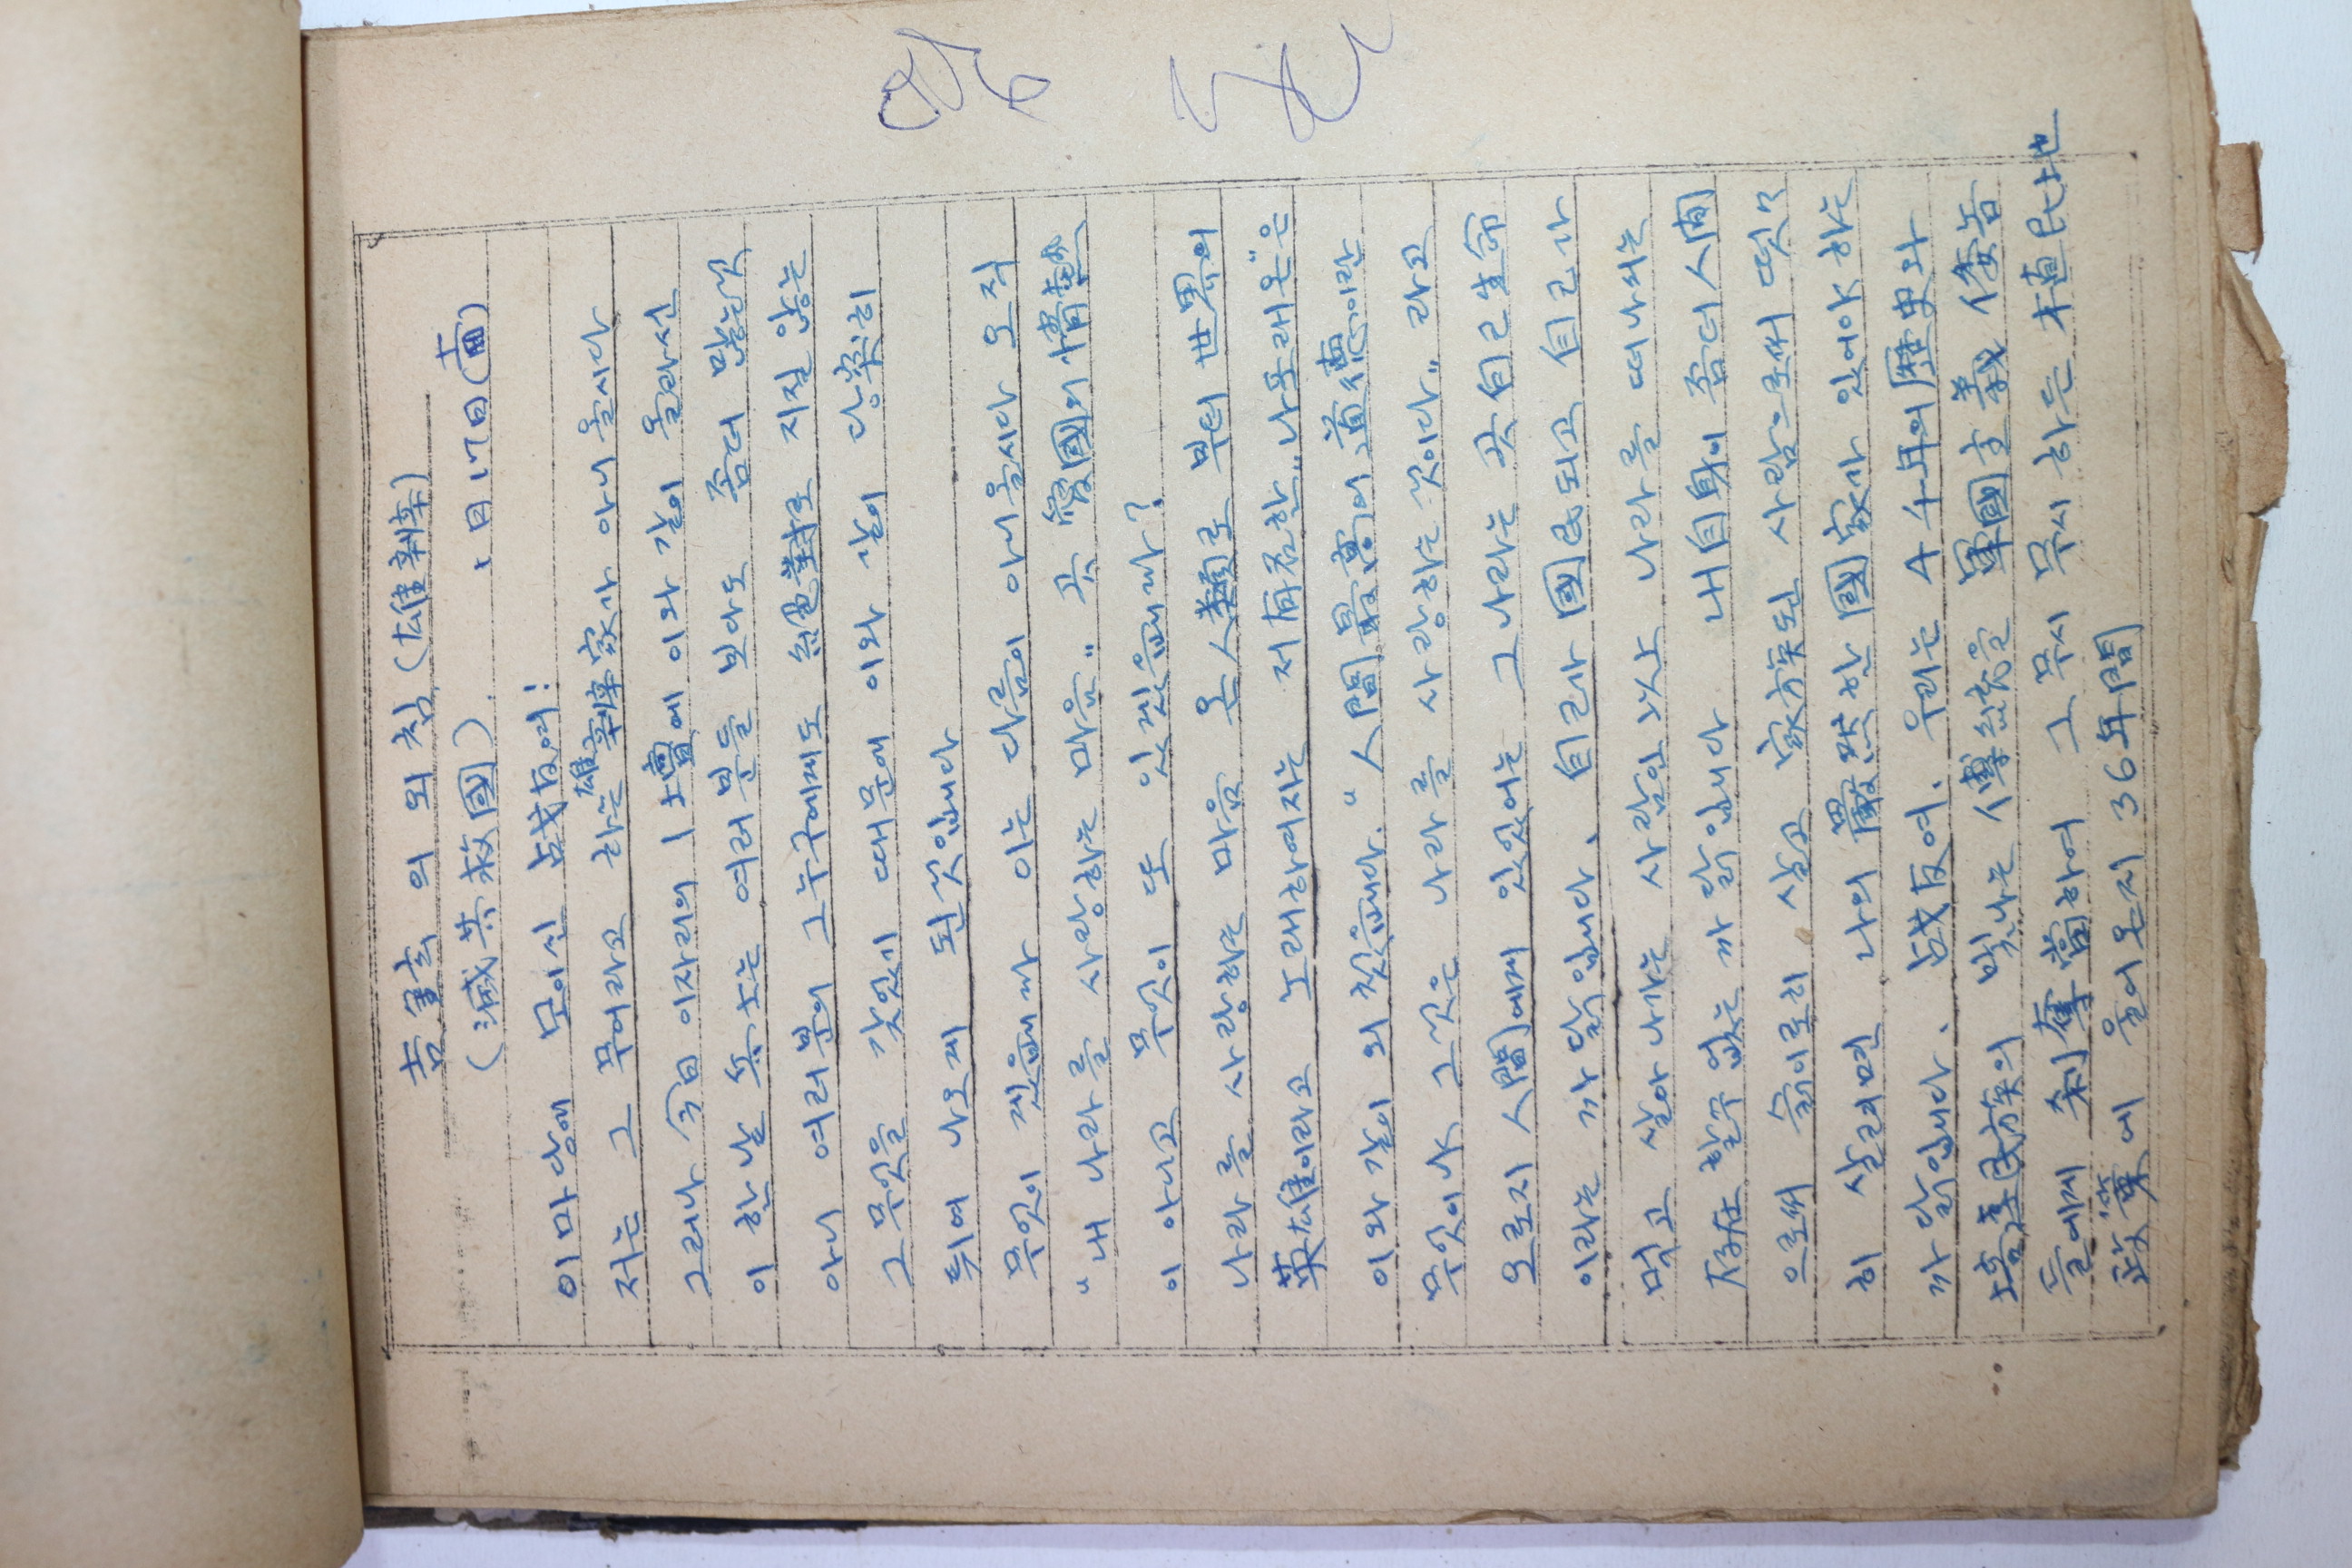 吉鉉의 외침 (雄辯)
(滅共救國). 1月17日
이마당에 모이신 战友여!
저는 그 무어라고 하는 雄辯家가 아니올시다
그러나 今日 이자리의 1 土壇에 이와 같이 올라선
이 한낱 兵士는 여러분들 보다도 좀더 많은것
아니 여러분의 그누구에게도 絕對로 지질 않는
그무엇을 갖었기 때문에 이와 같이 당돌히
튀여 나오게 된것입니다
무엇이 겠읍니까 이는 다름이 아니올시다 오직
"내 나라를 사랑하는 마음„ 곳 愛國의 情熱
이 아니고 무엇이 또 있겠읍니까?
나라를 사랑하는 마음 온 人類로 부터 世界의
英雄이라고 노래하여지는 저 有名한 „나포래온"은
이와 같이 외쳤읍니다. "人間最高의 道德이란
무엇이냐 그것은 나라를 사랑하는 것이다„ 라고
오로지 人間에게 있었어는 그나라는 곳 自己生命
이라는 까닭입니다. 自己가 國民되고 自己가
먹고 살아나가는 사람인 以上 나라를 떠나서는
存在할수 없는 까닭입니다 내自身이 좀더 人间
으로써 슭이로히 살고 家族된 사람으로써 떳々
히 살려면 나의 嚴然한 國家가 있어야 하는
까닭입니다. 战友여. 우리는 4千年의 歷史와
培達民族의 빛나는 傳統을 軍國主義 倭놈
들에게 剝奪當하여 그 무시무시 하든 植民土地
政策에 울어온지 36年間